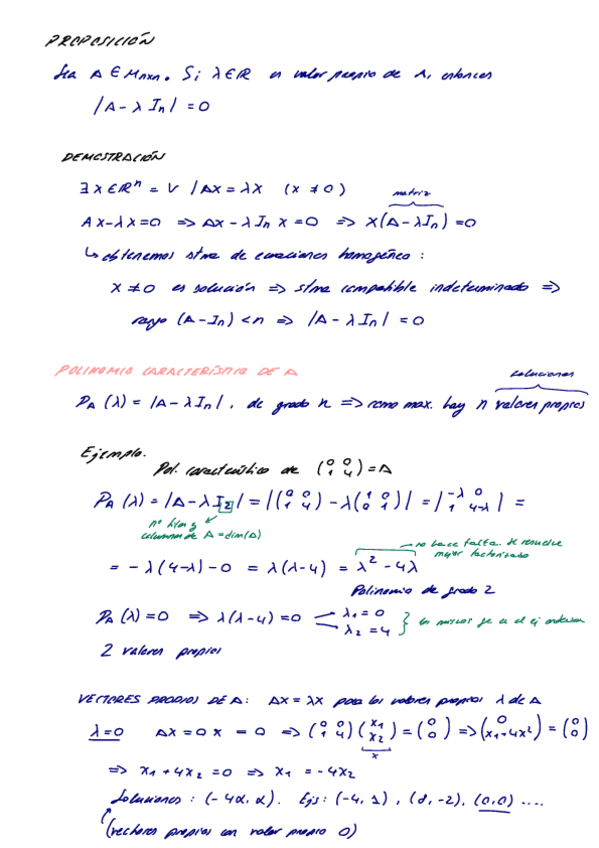 PROPOSICIÓN
Sea A ∈ Mnxn. Si λ∈ℝ es valor propio de A, entonces
|A - λ In| = 0
DEMOSTRACIÓN
∃ x ∈ ℝⁿ = V / Ax = λx (x ≠ 0)
matriz
Ax - λx = 0 => Ax - λ In x = 0 => x(A - λIn) = 0
↳ obtenemos stma de ecuaciones homogéneo :
x ≠ 0 es solución => stma compatible indeterminado =>
rango (A - In) < n => |A - λ In| = 0
POLINOMIO CARACTERÍSTICO DE A
soluciones
PA (λ) = |A - λ In|, de grado n => como max. hay n valores propios
Ejemplo.
Pol. característico de (0 0 / 1 4) = A
PA (λ) = |A - λ I2| = |(0 0 / 1 4) - λ(1 0 / 0 1)| = |-λ 0 / 1 4-λ| =
nº filas y
columnas de A = dim(A)
no hace falta. Se resuelve
mejor factorizado
= - λ (4-λ) - 0 = λ (λ-4) = λ² - 4λ
Polinomio de grado 2
PA (λ) = 0 => λ(λ-4) = 0 λ1 = 0
λ2 = 4 } los mismos que en el ej anterior
2 valores propios
VECTORES PROPIOS DE A: Ax = λx para los valores propios λ de A
λ=0 Ax = 0 x = 0 => (0 0 / 1 4)(x1 / x2) = (0 / 0) => (0 / x1+4x2) = (0 / 0)
x
=> x1 + 4x2 = 0 => x1 = -4x2
Soluciones : (-4α, α). Ejs: (-4, 1) , (8, -2), (0,0) ....
(vectores propios con valor propio 0)